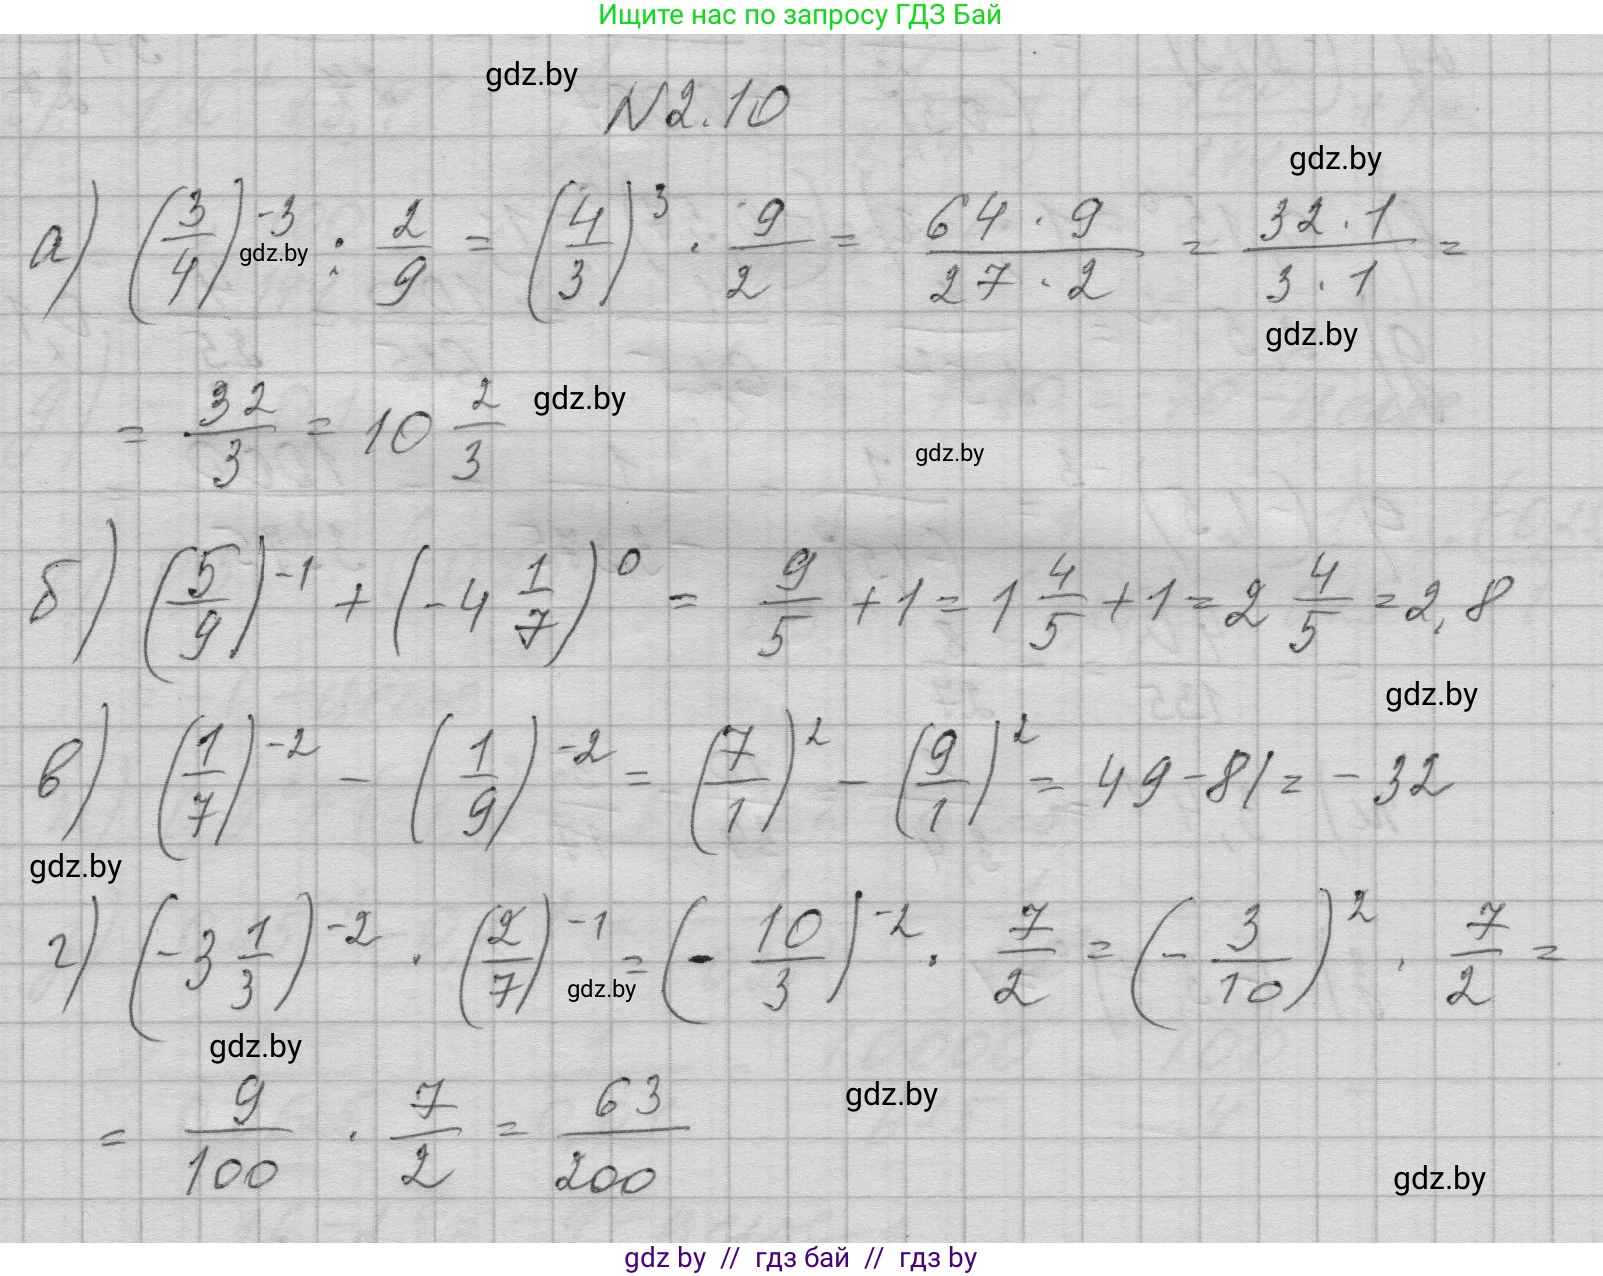 Ищите нас по запросу ГДЗ Бай
gdz.by
N2.10
gdz.by
а) (3/4)^-3 : 2/9 = (4/3)^3 · 9/2 = (64 · 9)/(27 · 2) = (32 · 1)/(3 · 1) =
gdz.by
gdz.by
= 32/3 = 10 2/3
gdz.by
gdz.by
б) (5/9)^-1 + (-4 1/7)^0 = 9/5 + 1 = 1 4/5 + 1 = 2 4/5 = 2,8
gdz.by
в) (1/7)^-2 - (1/9)^-2 = (7/1)^2 - (9/1)^2 = 49 - 81 = -32
gdz.by
г) (-3 1/3)^-2 · (2/7)^-1 = (-10/3)^-2 · 7/2 = (-3/10)^2 · 7/2 =
gdz.by
gdz.by
= 9/100 · 7/2 = 63/200
gdz.by
gdz.by
gdz by // гдз бай // гдз by